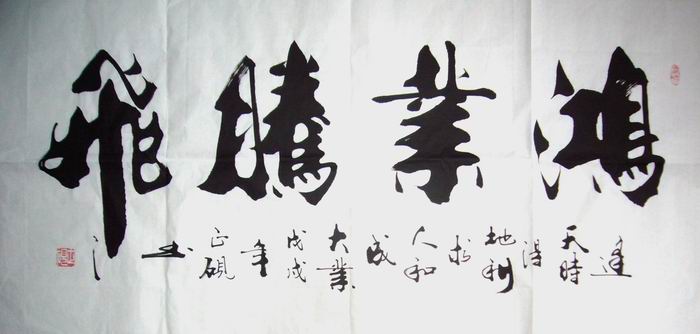 鴻業騰飛
逢天時得地利人和成大業戊戌年正硯书